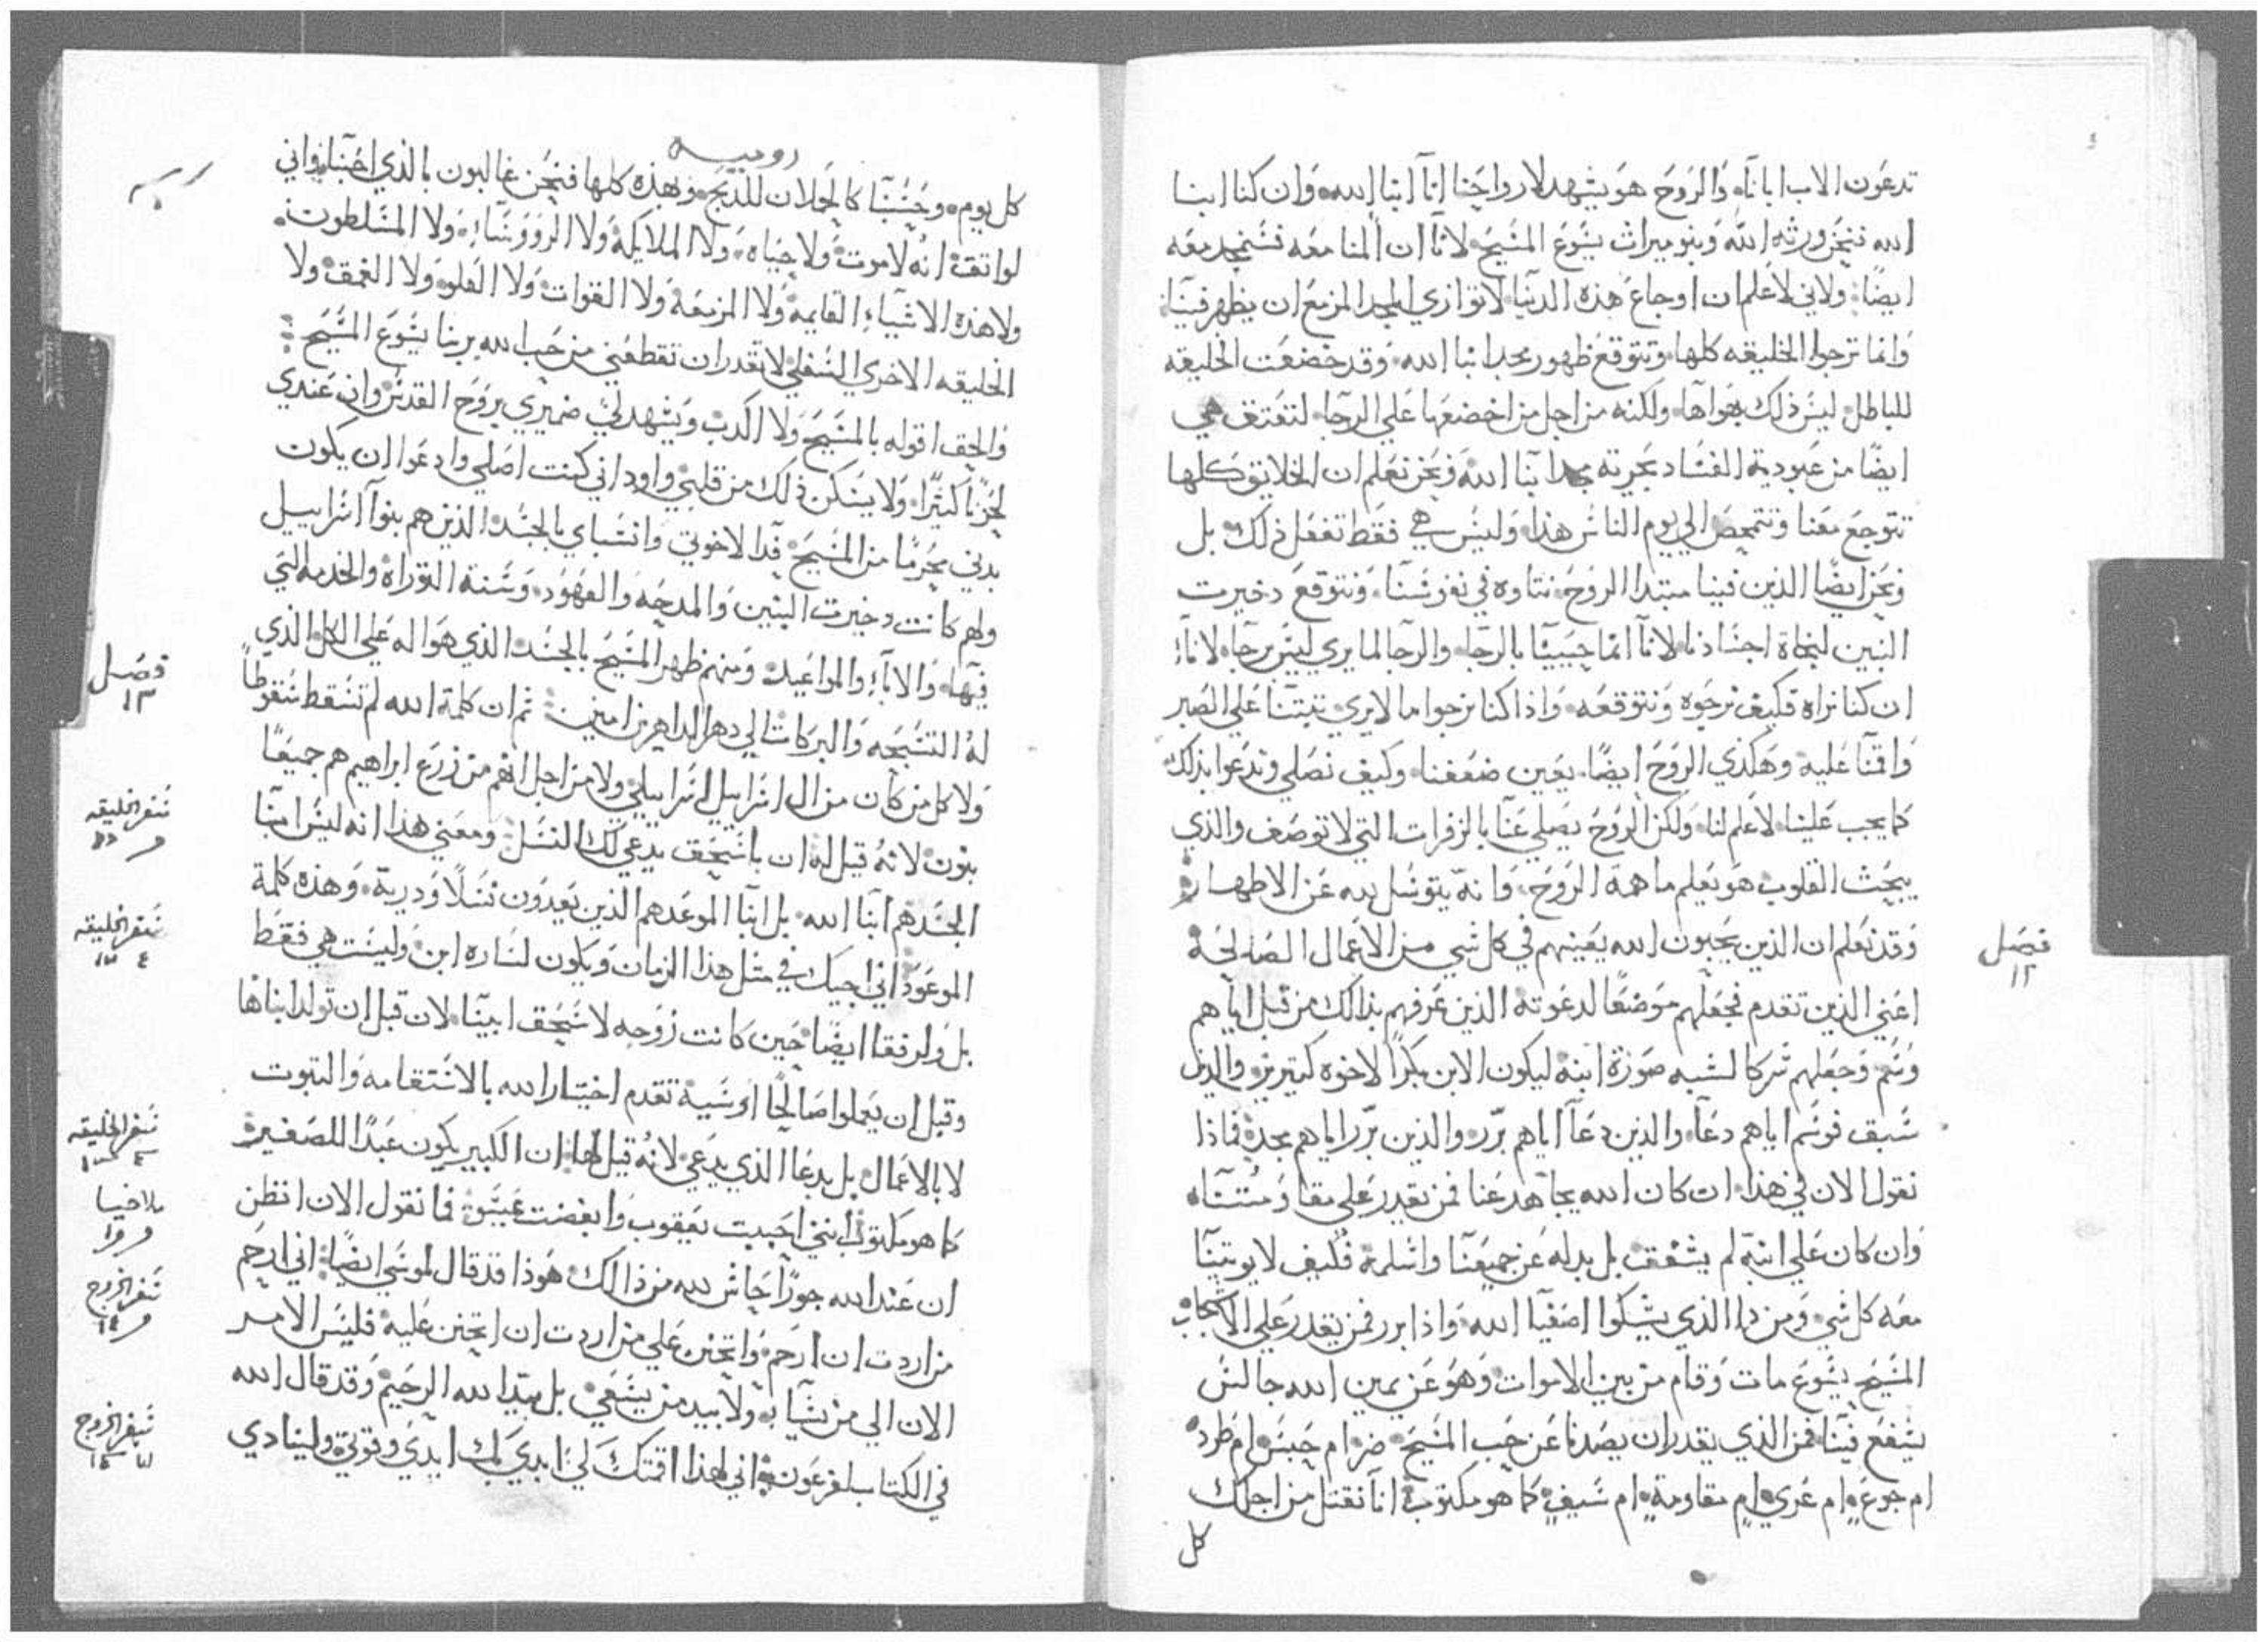 تدعون الاب ابانا والروح هو يشهد لارواحنا انا ابنا الله وان كنا ابنا
الله فنحن ورثه الله وبنو ميراث يشوع المسيح لانا ان المنا معه فسنمجد معه
ايضا ولاني لاعلم ان اوجاع هذه الدنيا لا توازي المجد المزمع ان يظهر فينا
وانما ترجوا الخليقه كلها وتتوقع ظهور مجد ابنا الله وقد خضعت الخليقه
للباطل ليس ذلك بهواها ولكنه من اجل من اخضعها علي الرجا لتعتق هي
ايضا من عبودية الفساد بحرية مجد ابنا الله ونحن نعلم ان الخلايق كلها
تتوجع معنا وتتمخض الي يوم الناس هذا وليس هي فقط تفعل ذلك بل
ونحن ايضا الذين فينا مبتدا الروح نتاوه في نفوسنا ونتوقع دخيرت
البنين لنجاة اجسادنا لانا انما حيينا بالرجا والرجا لما يري ليس برجا لانا
ان كنا نراه فكيف نرجوه ونتوقعه واذا كنا نرجوا ما لا يري تبتنا علي الصبر
واقمنا عليه وهكذي الروح ايضا يعين ضعفنا وكيف نصلي وندعوا بذلك
كما يجب علينا لا علم لنا ولكن الروح يصلي عنا بالزفرات التي لا توصف والذي
يبحث القلوب هو يعلم ما همة الروح وانه يتوسل لله عن الاطهار
فصل ١٢
وقد نعلم ان الذين يحبون الله يعينهم في كل شي من الاعمال الصالحة
اعني الذين تقدم فجعلهم موضعا لدعوته الذين عرفهم بذالك من قبل اياهم
وسم وجعلهم شركا لشبه صورة ابنه ليكون الابن بكرا لاخوه كتيرين والذين
سبق فوسم اياهم دعا والذين دعا اياهم برر والذين برر اياهم مجد فماذا
نقول الان في هذا ان كان الله يجاهد عنا فمن يقدر علي مقاومتناه
وان كان علي ابنه لم يشفق بل بدله عن جميعنا واسلمه فكيف لا يوتينا
معه كل شي ومن دا الذي يشكوا اصفيا الله واذا برر فمن يقدر علي الاشجاب
المسيح يشوع مات وقام من بين الاموات وهو عن يمين الله جالس
يشفع فينا فمن الذي يقدر ان يصدنا عن حب المسيح ضر ام حبس ام طرد
ام جوع ام عري ام مقاومة ام سيف كما هو مكتوب انا نقتل من اجلك
كل
رومية
كل يوم وحسبنا كالحملان للذبح وهذه كلها فنحن غالبون بالذي احبنا واني
لواتق انه لا موت ولا حياه ولا الملايكة ولا الرووساء ولا المسلطون
ولا هذه الاشياء القايمة ولا المزمعة ولا القوات ولا العلو ولا العمق ولا
الخليقه الاخري السفلي لا تقدر ان تقطعني من حب الله بربنا يشوع المسيح
والحق اقوله بالمسيح ولا اكدب ويشهد لي ضميري بروح القدس وان عندي
لحزنا كثيرا ولا يسكن ذلك من قلبي واود اني كنت اصلي وادعوا ان يكون
بدني محرما من المسيح فدا لاخوتي وانسباي بالجسد الذين هم بنوا اسراييل
ولهم كانت دخيرت البنين والمدحه والعهود وسنة التوراة والخدمه التي
فيها والاباء والمواعيد ومنهم ظهر المسيح بالجسد الذي هو اله علي الكل الذي
له التسبحه والبركات الي دهر الداهرين امين ثم ان كلمة الله لم تسقط سقوطا
فصل ١٣
ولا كل من كان من ال اسراييل اسراييلي ولا من اجل انهم من زرع ابراهيم هم جميعا
بنون لانه قيل له ان باسحق يدعي لك النسل ومعني هذا انه ليس ابنا
سفر الخليقه
الجسد هم ابنا الله بل ابنا الموعد هم الذين يعدون نسلا ودرية وهذه كلمة
الموعود اني اجيك في مثل هذا الزمان ويكون لساره ابن وليست هي فقط
سفر الخليقه
بل ولرفقا ايضا حين كانت زوجه لاسحق ابينا لان قبل ان تولد ابناها
وقبل ان يعملوا صالحا او سية تقدم اختيار الله بالاستقامه والتبوت
لا بالاعمال بل بدعا الذي يدعي لانه قيل لها ان الكبير يكون عبدا للصغير
سفر الخليقه
كما هو مكتوب انني احببت يعقوب وابغضت عيسو فما نقول الان انظن
ملاخيا
ان عند الله جورا حاش لله من ذالك هوذا قد قال لموسي ايضا اني ارحم
سفر الخروج
من اردت ان ارحم واتحنن علي من اردت ان اتحنن عليه فليس الامر
الان الي من يشا به ولا بيد من يسعي بل بيد الله الرحيم وقد قال الله
سفر الخروج
في الكتاب لفرعون اني لهذا اقمتك لي ابدي بك ايدي وقوتي ولينادي